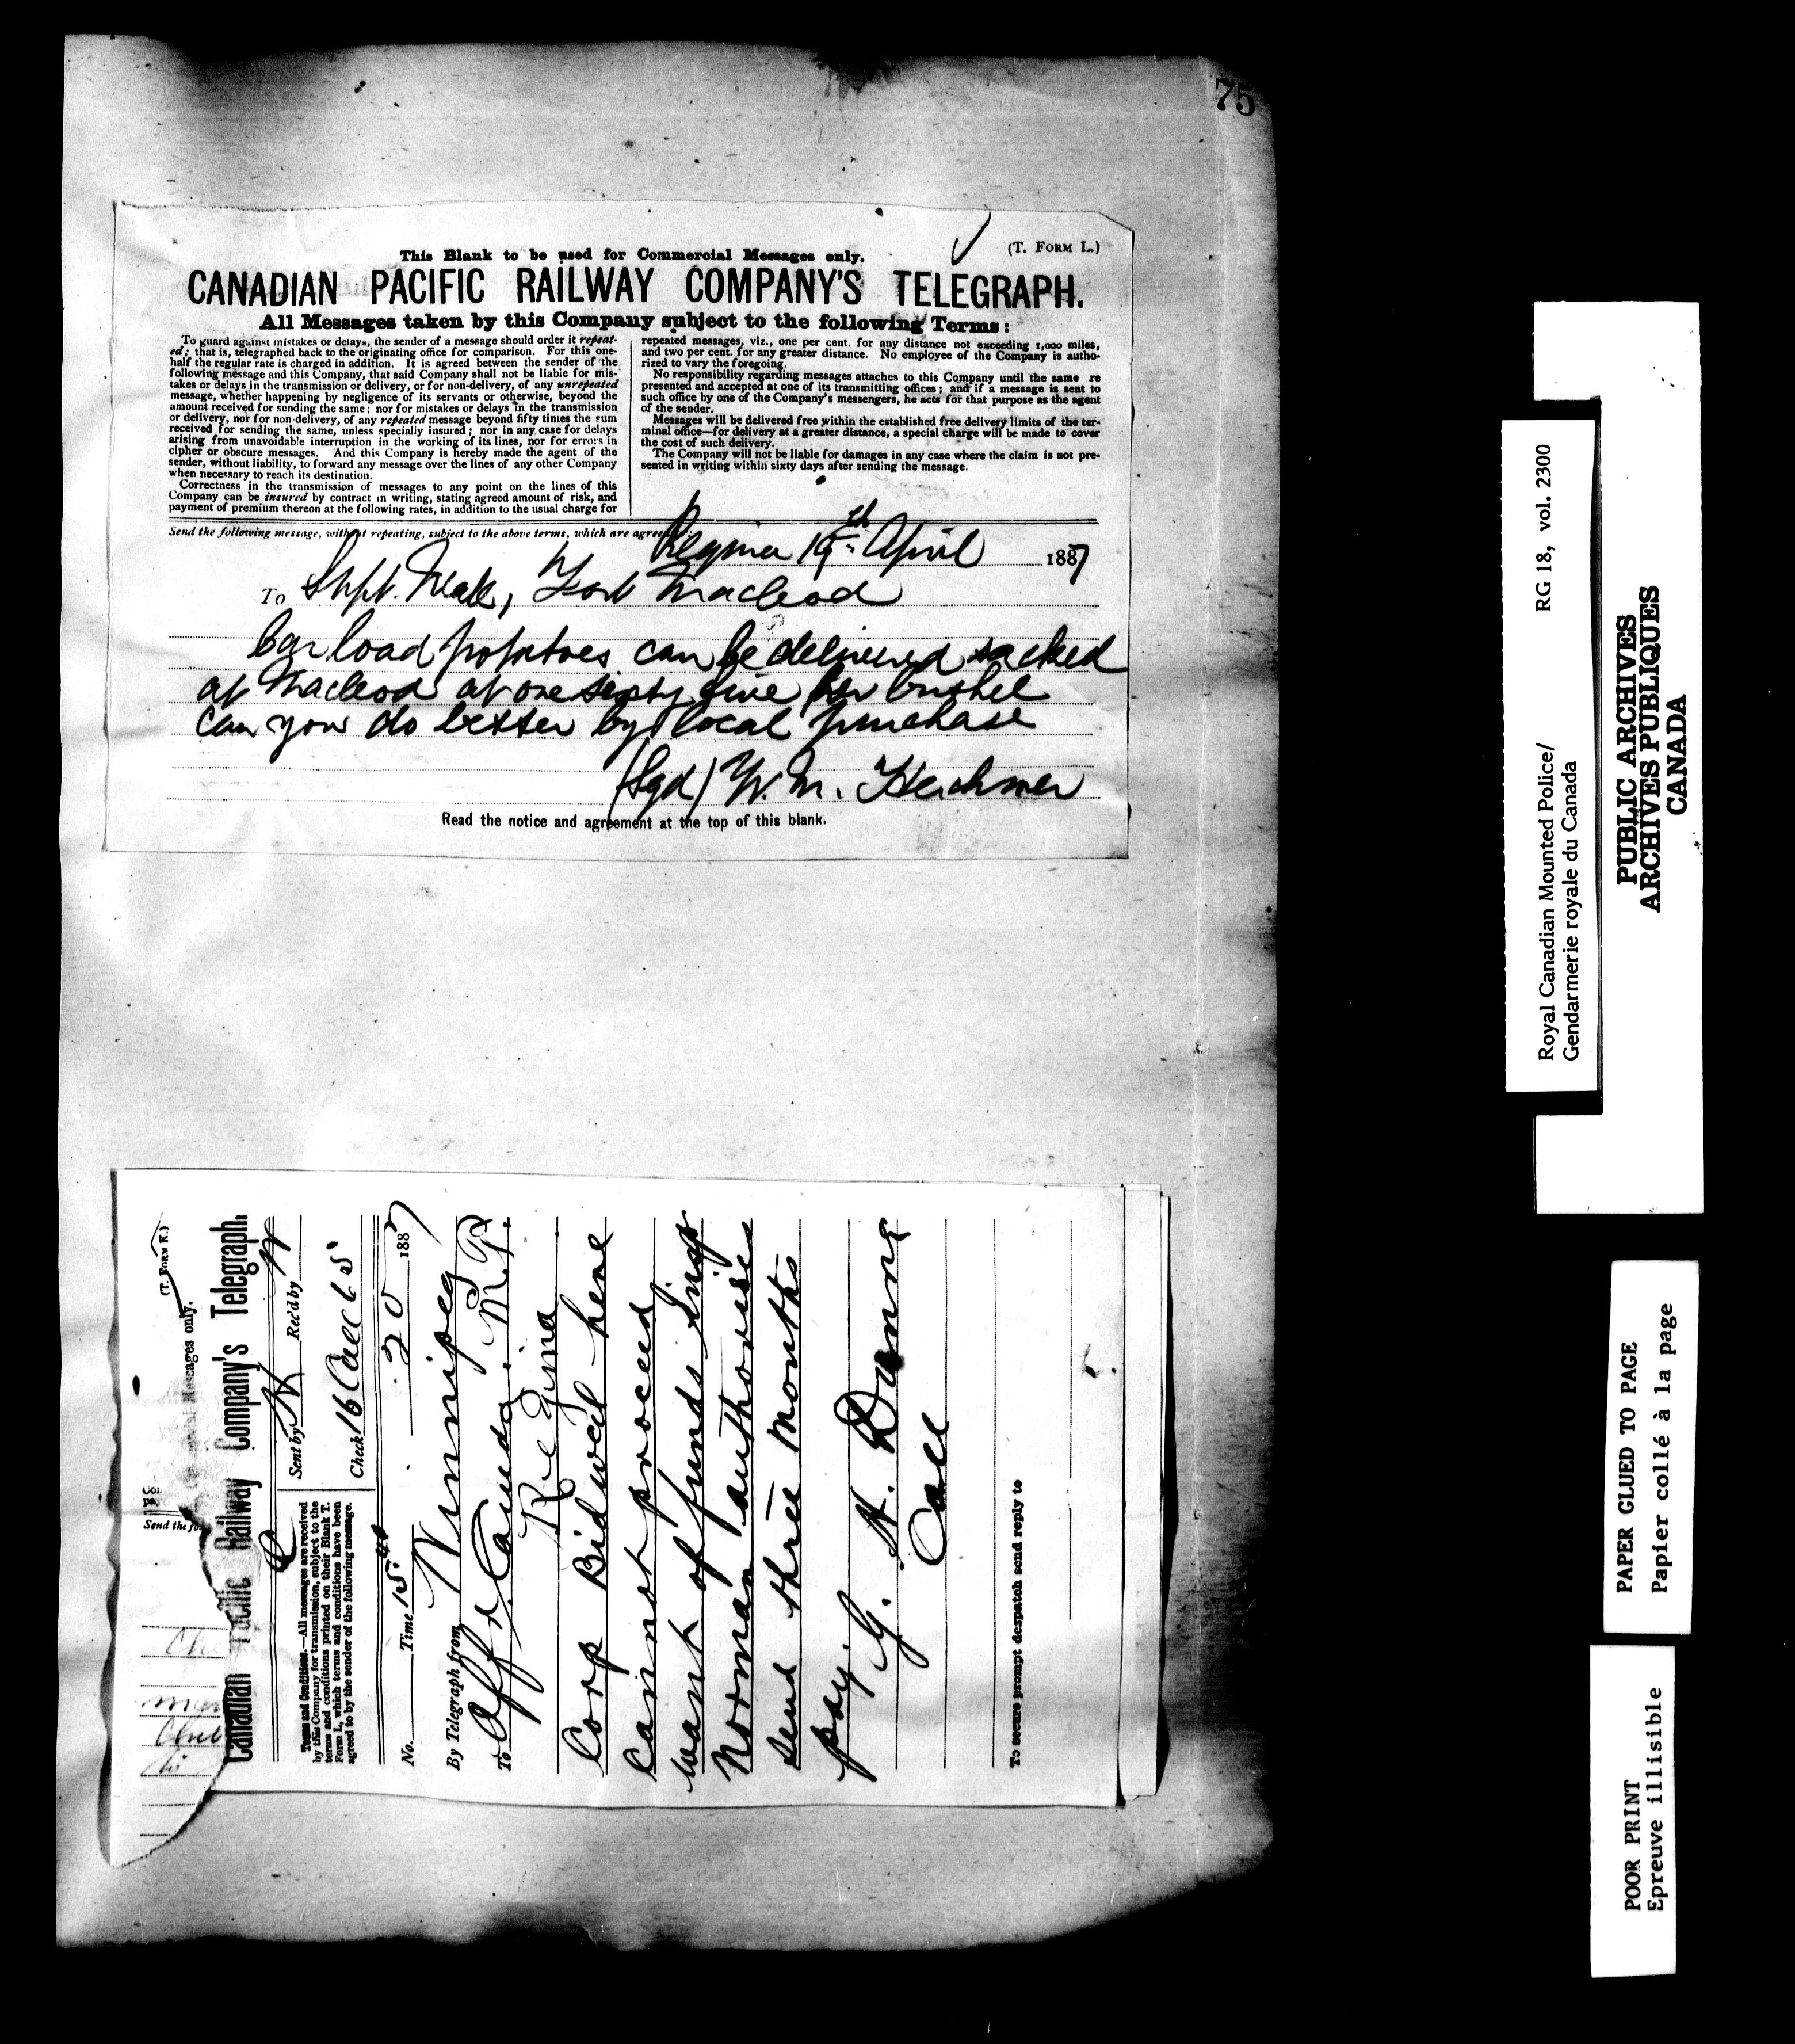 75
(T. FORM L.)
This Blank to be used for Commercial Messages only.
CANADIAN PACIFIC RAILWAY COMPANY'S TELEGRAPH.
All Messages taken by this Company subject to the following Terms:
To guard against mistakes or delays, the sender of a message should order it repeat-
ed; that is, telegraphed back to the originating office for comparison. For this one-
half the regular rate is charged in addition. It is agreed between the sender of the
following message and this Company, that said Company shall not be liable for mis-
takes or delays in the transmission or delivery, or for non-delivery, of any unrepeated
message, whether happening by negligence of its servants or otherwise, beyond the
amount received for sending the same; nor for mistakes or delays in the transmission
or delivery, nor for non-delivery, of any repeated message beyond fifty times the sum
received for sending the same, unless specially insured; nor in any case for delays
arising from unavoidable interruption in the working of its lines, nor for errors in
cipher or obscure messages. And this Company is hereby made the agent of the
sender, without liability, to forward any message over the lines of any other Company
when necessary to reach its destination.
Correctness in the transmission of messages to any point on the lines of this
Company can be insured by contract in writing, stating agreed amount of risk, and
payment of premium thereon at the following rates, in addition to the usual charge for
repeated messages, viz., one per cent. for any distance not exceeding 1,000 miles,
and two per cent. for any greater distance. No employee of the Company is autho-
rized to vary the foregoing.
No responsibility regarding messages attaches to this Company until the same re
presented and accepted at one of its transmitting offices; and if a message is sent to
such office by one of the Company's messengers, he acts for that purpose as the agent
of the sender.
Messages will be delivered free within the established free delivery limits of the ter-
minal office—for delivery at a greater distance, a special charge will be made to cover
the cost of such delivery.
The Company will not be liable for damages in any case where the claim is not pre-
sented in writing within sixty days after sending the message.
Send the following message, without repeating, subject to the above terms, which are agreed
Regina 19th April 1887
To Supt. Neale, Fort Macleod
Car load potatoes can be delivered sacked
at Macleod at one sixty five per bushel
Can you do better by local purchase
(Sgd) W. M. Herchmer
Read the notice and agreement at the top of this blank.
Send the fo
(T. FORM K.)
Messages only.
Canadian Pacific Railway Company's Telegraph.
Terms and Conditions.—All messages are received
by this Company for transmission, subject to the
terms and conditions printed on their Blank T.
Form L, which terms and conditions have been
agreed to by the sender of the following message.
Sent by Rec'd by
Check 16
No. Time 15 20 1887
By Telegraph from Winnipeg
To Offr Comdg. M.P.
Regina
Corp Bidwell here
Cannot proceed
want of funds
Norman authorises
send three months
pay.
G. H. Dunne
To secure prompt despatch send reply to
Royal Canadian Mounted Police/ RG 18, vol. 2300
Gendarmerie royale du Canada
PUBLIC ARCHIVES
ARCHIVES PUBLIQUES
CANADA
PAPER GLUED TO PAGE
Papier collé à la page
POOR PRINT
Epreuve illisible